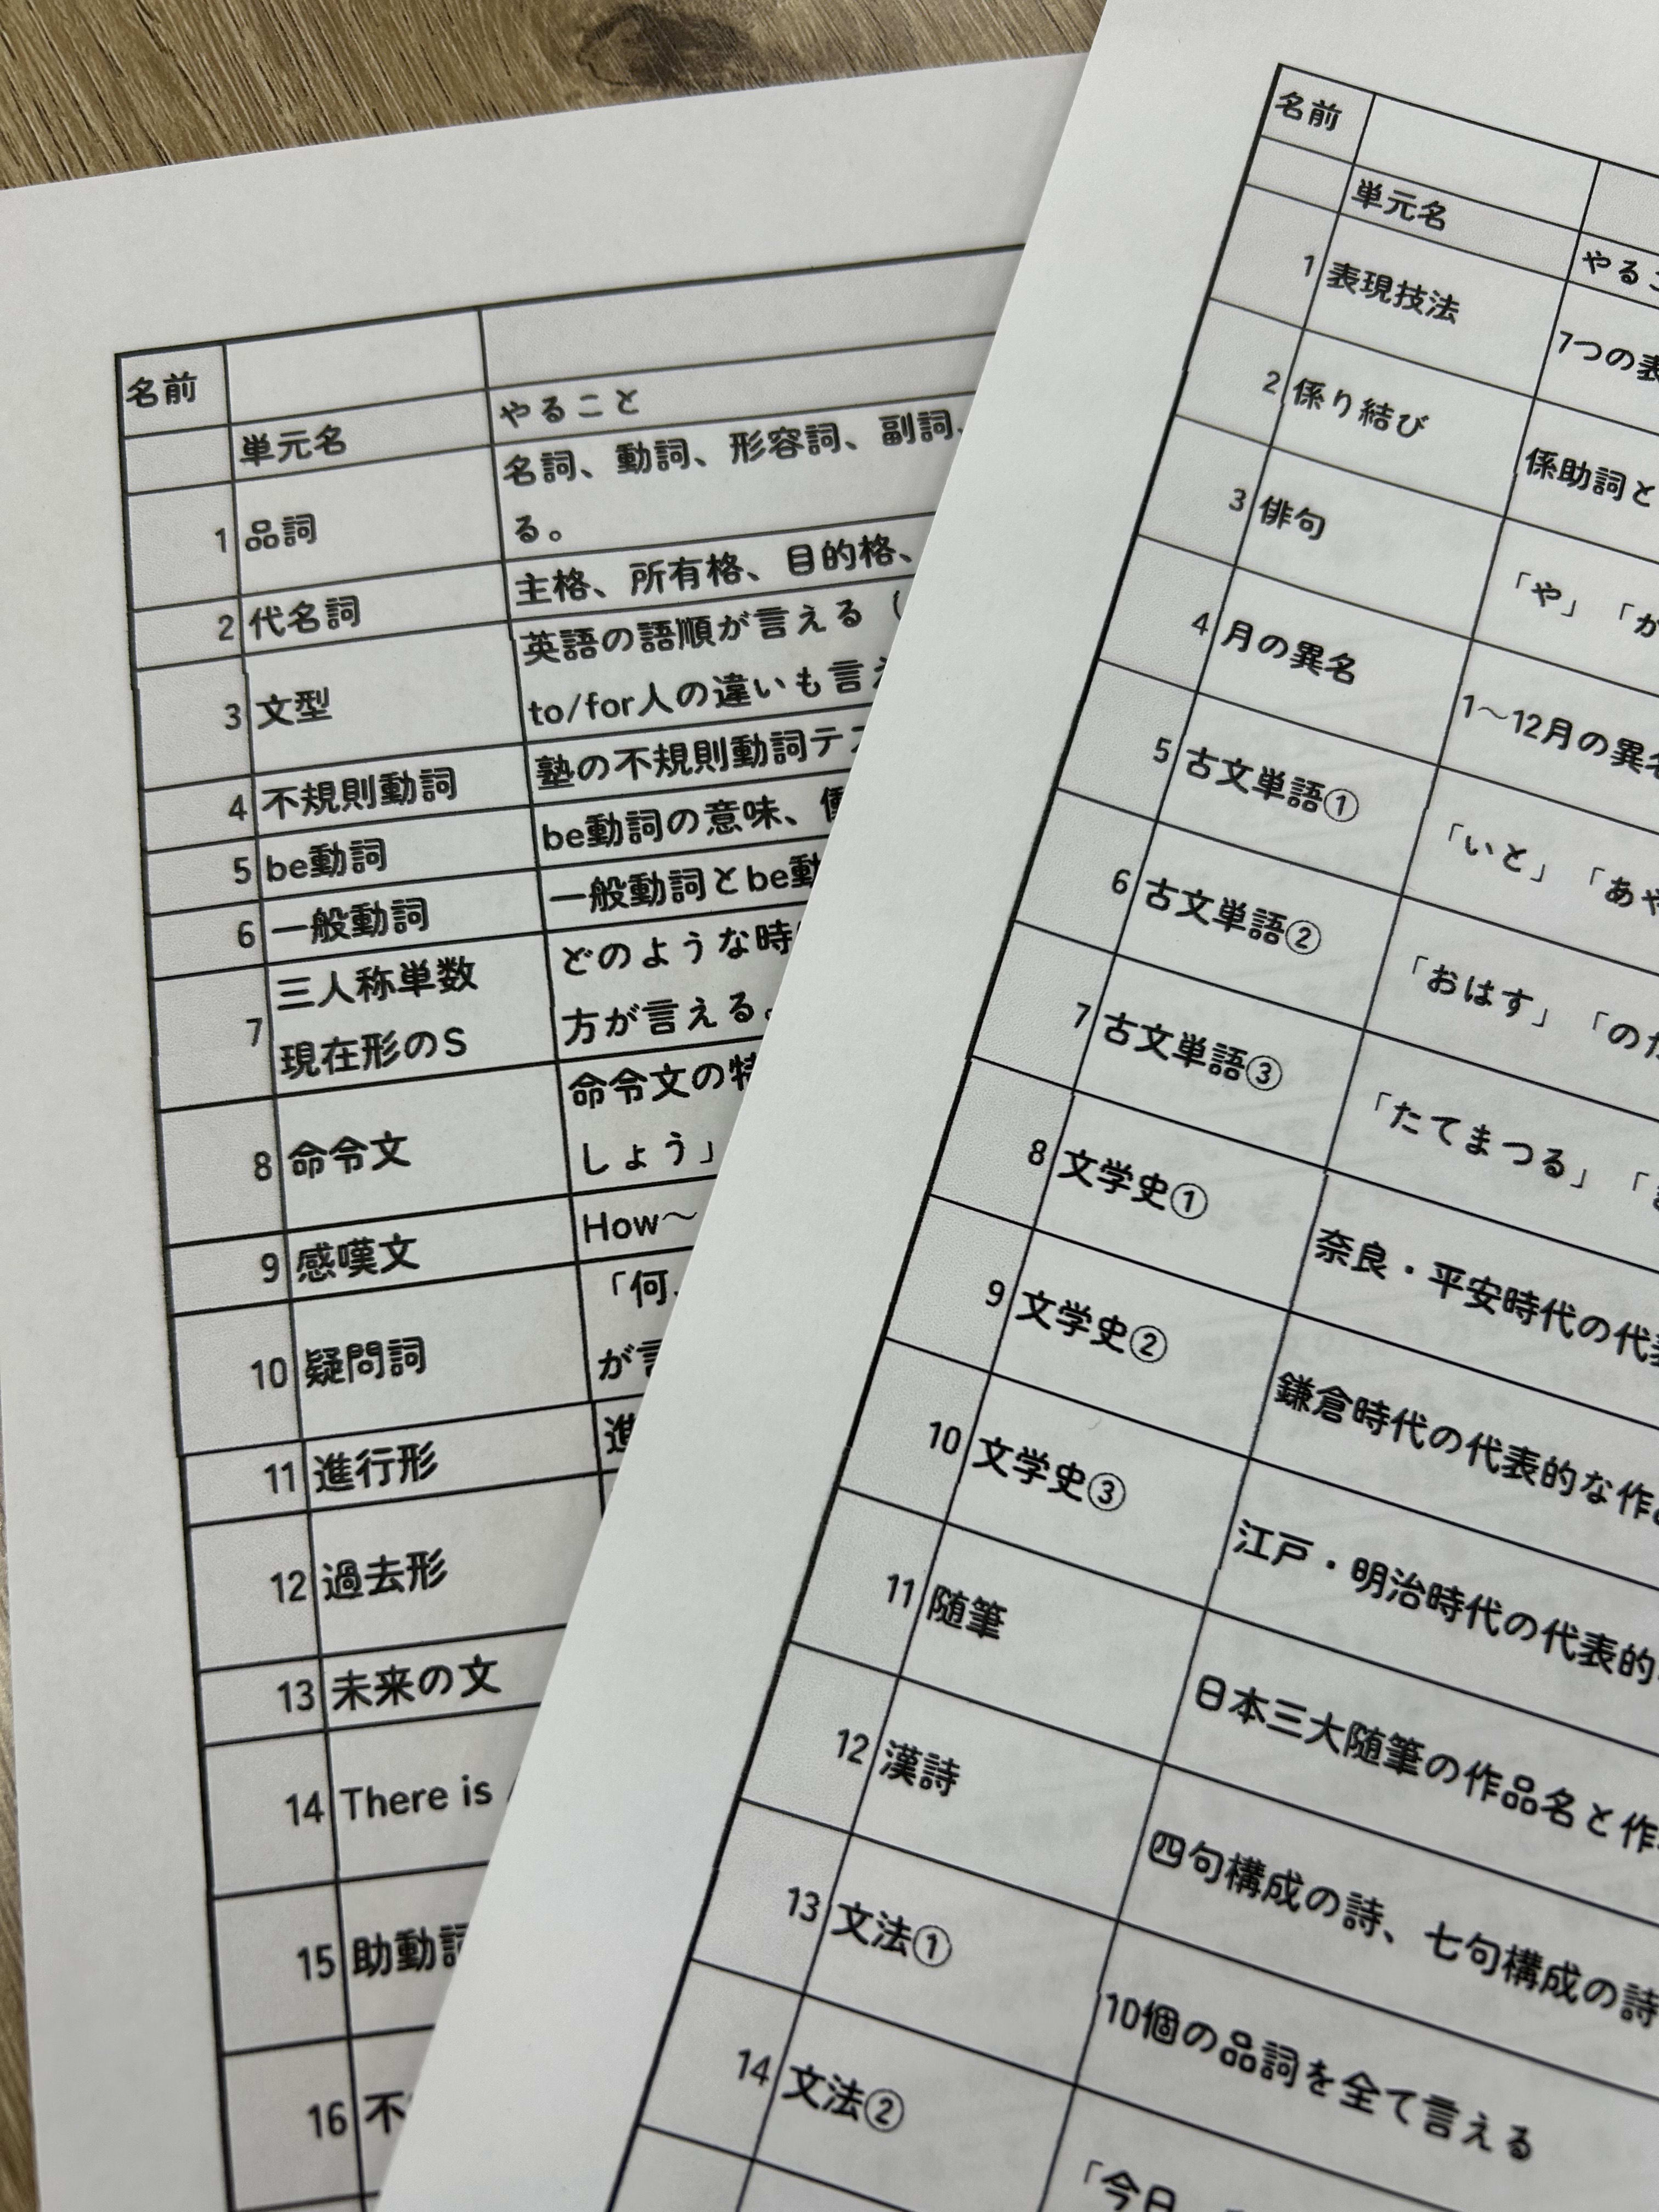 名前
単元名 やること
1 品詞 名詞、動詞、形容詞、副詞、
る。
2 代名詞 主格、所有格、目的格、
3 文型 英語の語順が言える
to/for人の違いも言
4 不規則動詞 塾の不規則動詞テ
5 be動詞 be動詞の意味、
6 一般動詞 一般動詞とbe動
7 三人称単数 どのような時
現在形のS 方が言える。
8 命令文 命令文の特
しょう」
9 感嘆文 How〜
10 疑問詞 「何、
が言
11 進行形 進
12 過去形
13 未来の文
14 There is
15 助動詞
16 不
名前
単元名 やるこ
1 表現技法 7つの表
2 係り結び 係助詞と
3 俳句 「や」「か
4 月の異名 1〜12月の異名
5 古文単語① 「いと」「あや
6 古文単語② 「おはす」「のた
7 古文単語③ 「たてまつる」「
8 文学史① 奈良・平安時代の代表
9 文学史② 鎌倉時代の代表的な作
10 文学史③ 江戸・明治時代の代表的
11 随筆 日本三大随筆の作品名と作
12 漢詩 四句構成の詩、七句構成の詩
13 文法① 10個の品詞を全て言える
14 文法② 「今日